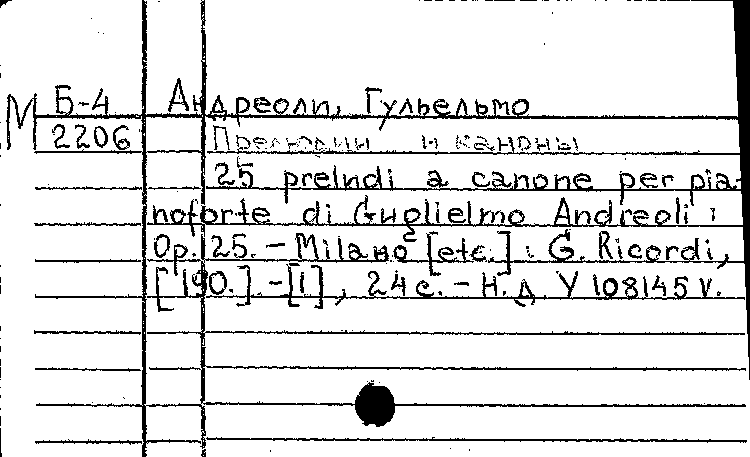 М Б-4 Андреоли, Гульельмо
2206 Прелюдии и каноны
25 preludi a canone per pia-
noforte di Guglielmo Andreoli :
Op. 25. - Milano [etc.] : G. Ricordi,
[190.]. - [1], 24 с. - Н. д. У 108145 v.